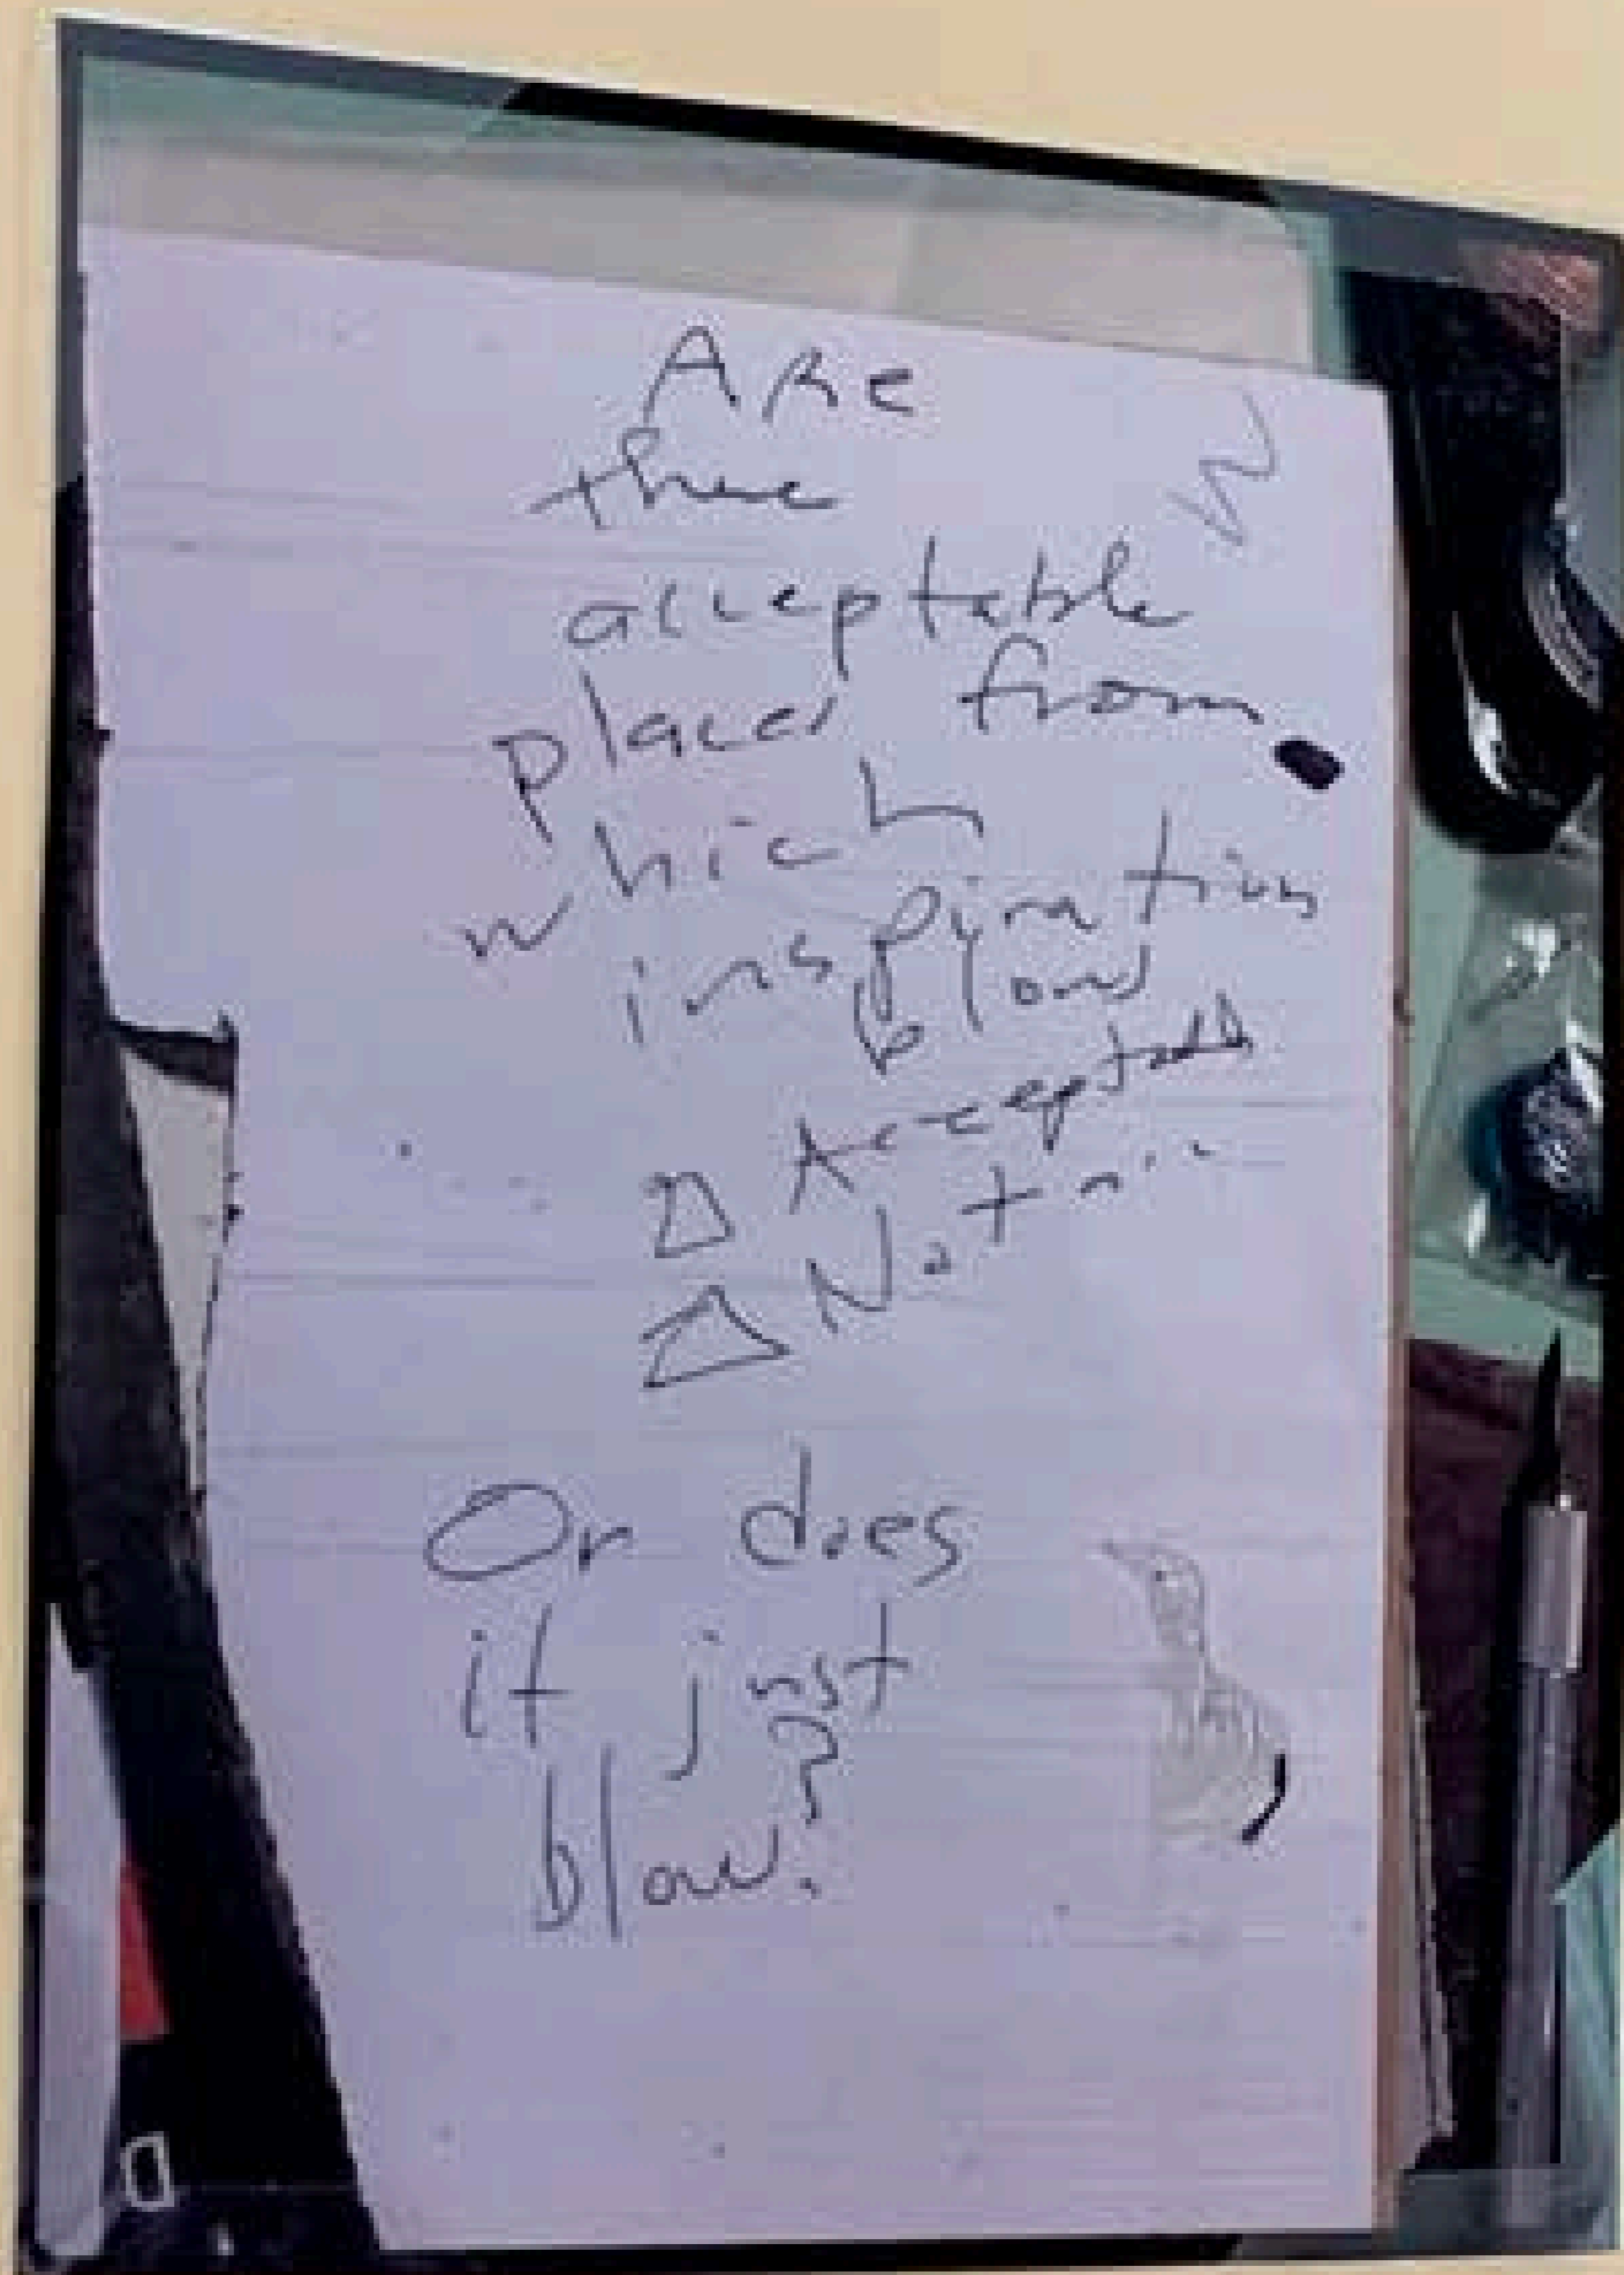 ARe
there
acceptable
places from
which
inspiration
blows
Acceptable
Not
Or does
it just
blow?